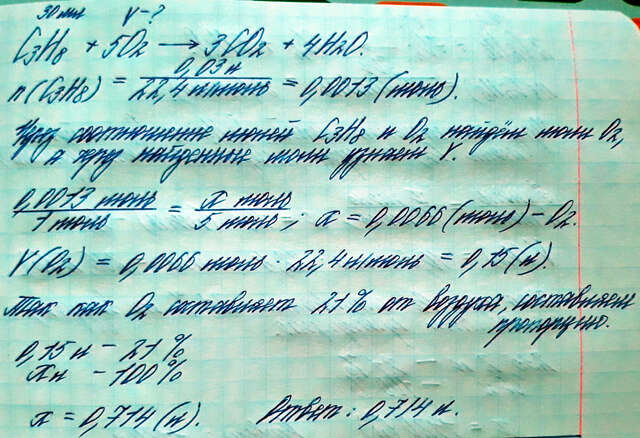 30 мл V-?
C3H8 + 5O2 → 3CO2 + 4H2O.
n(C3H8) = 0,03 л / 22,4 л/моль = 0,0013 (моль).
Через соотношение молей C3H8 и O2 найдём моли O2,
а через найденные моли узнаем V.
0,0013 моль / 1 моль = x моль / 5 моль; x = 0,0066 (моль) - O2.
V(O2) = 0,0066 моль · 22,4 л/моль = 0,15 (л).
Так как O2 составляет 21% от воздуха, составляем
пропорцию.
0,15 л - 21%
x л - 100%
x = 0,714 (л). Ответ: 0,714 л.